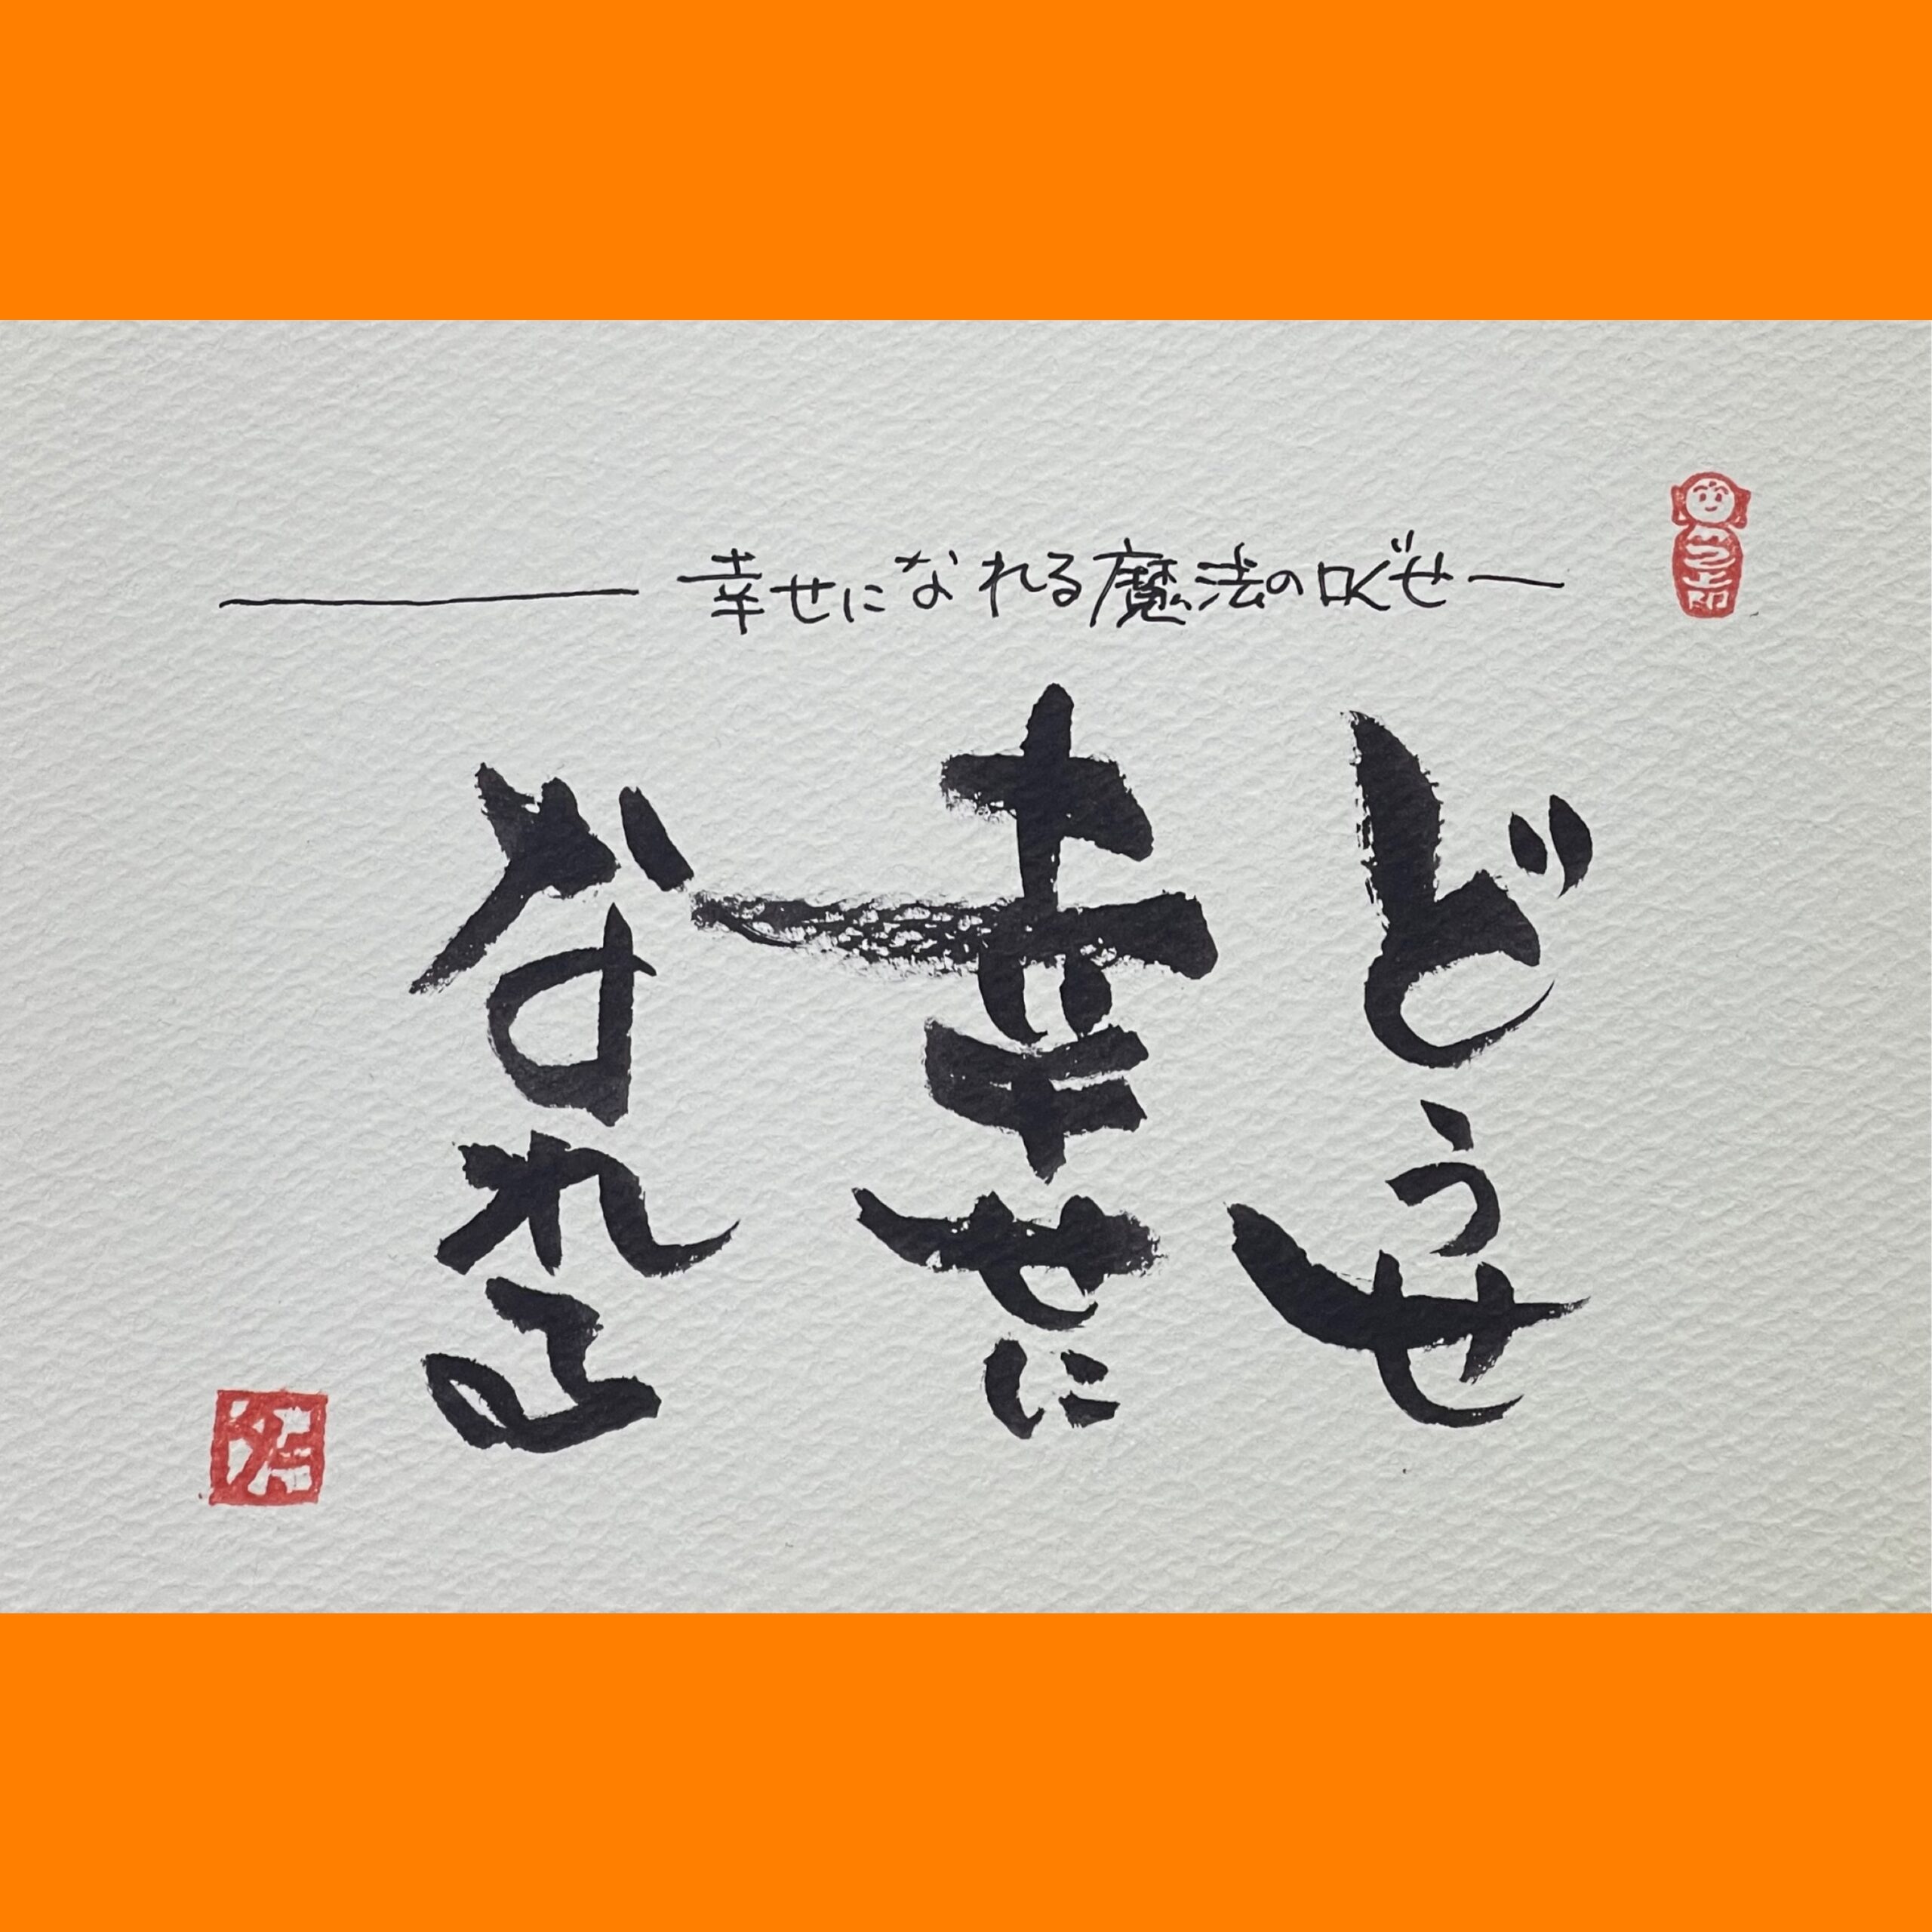 幸せになれる魔法の口ぐせ
どうせ
幸せに
なれる